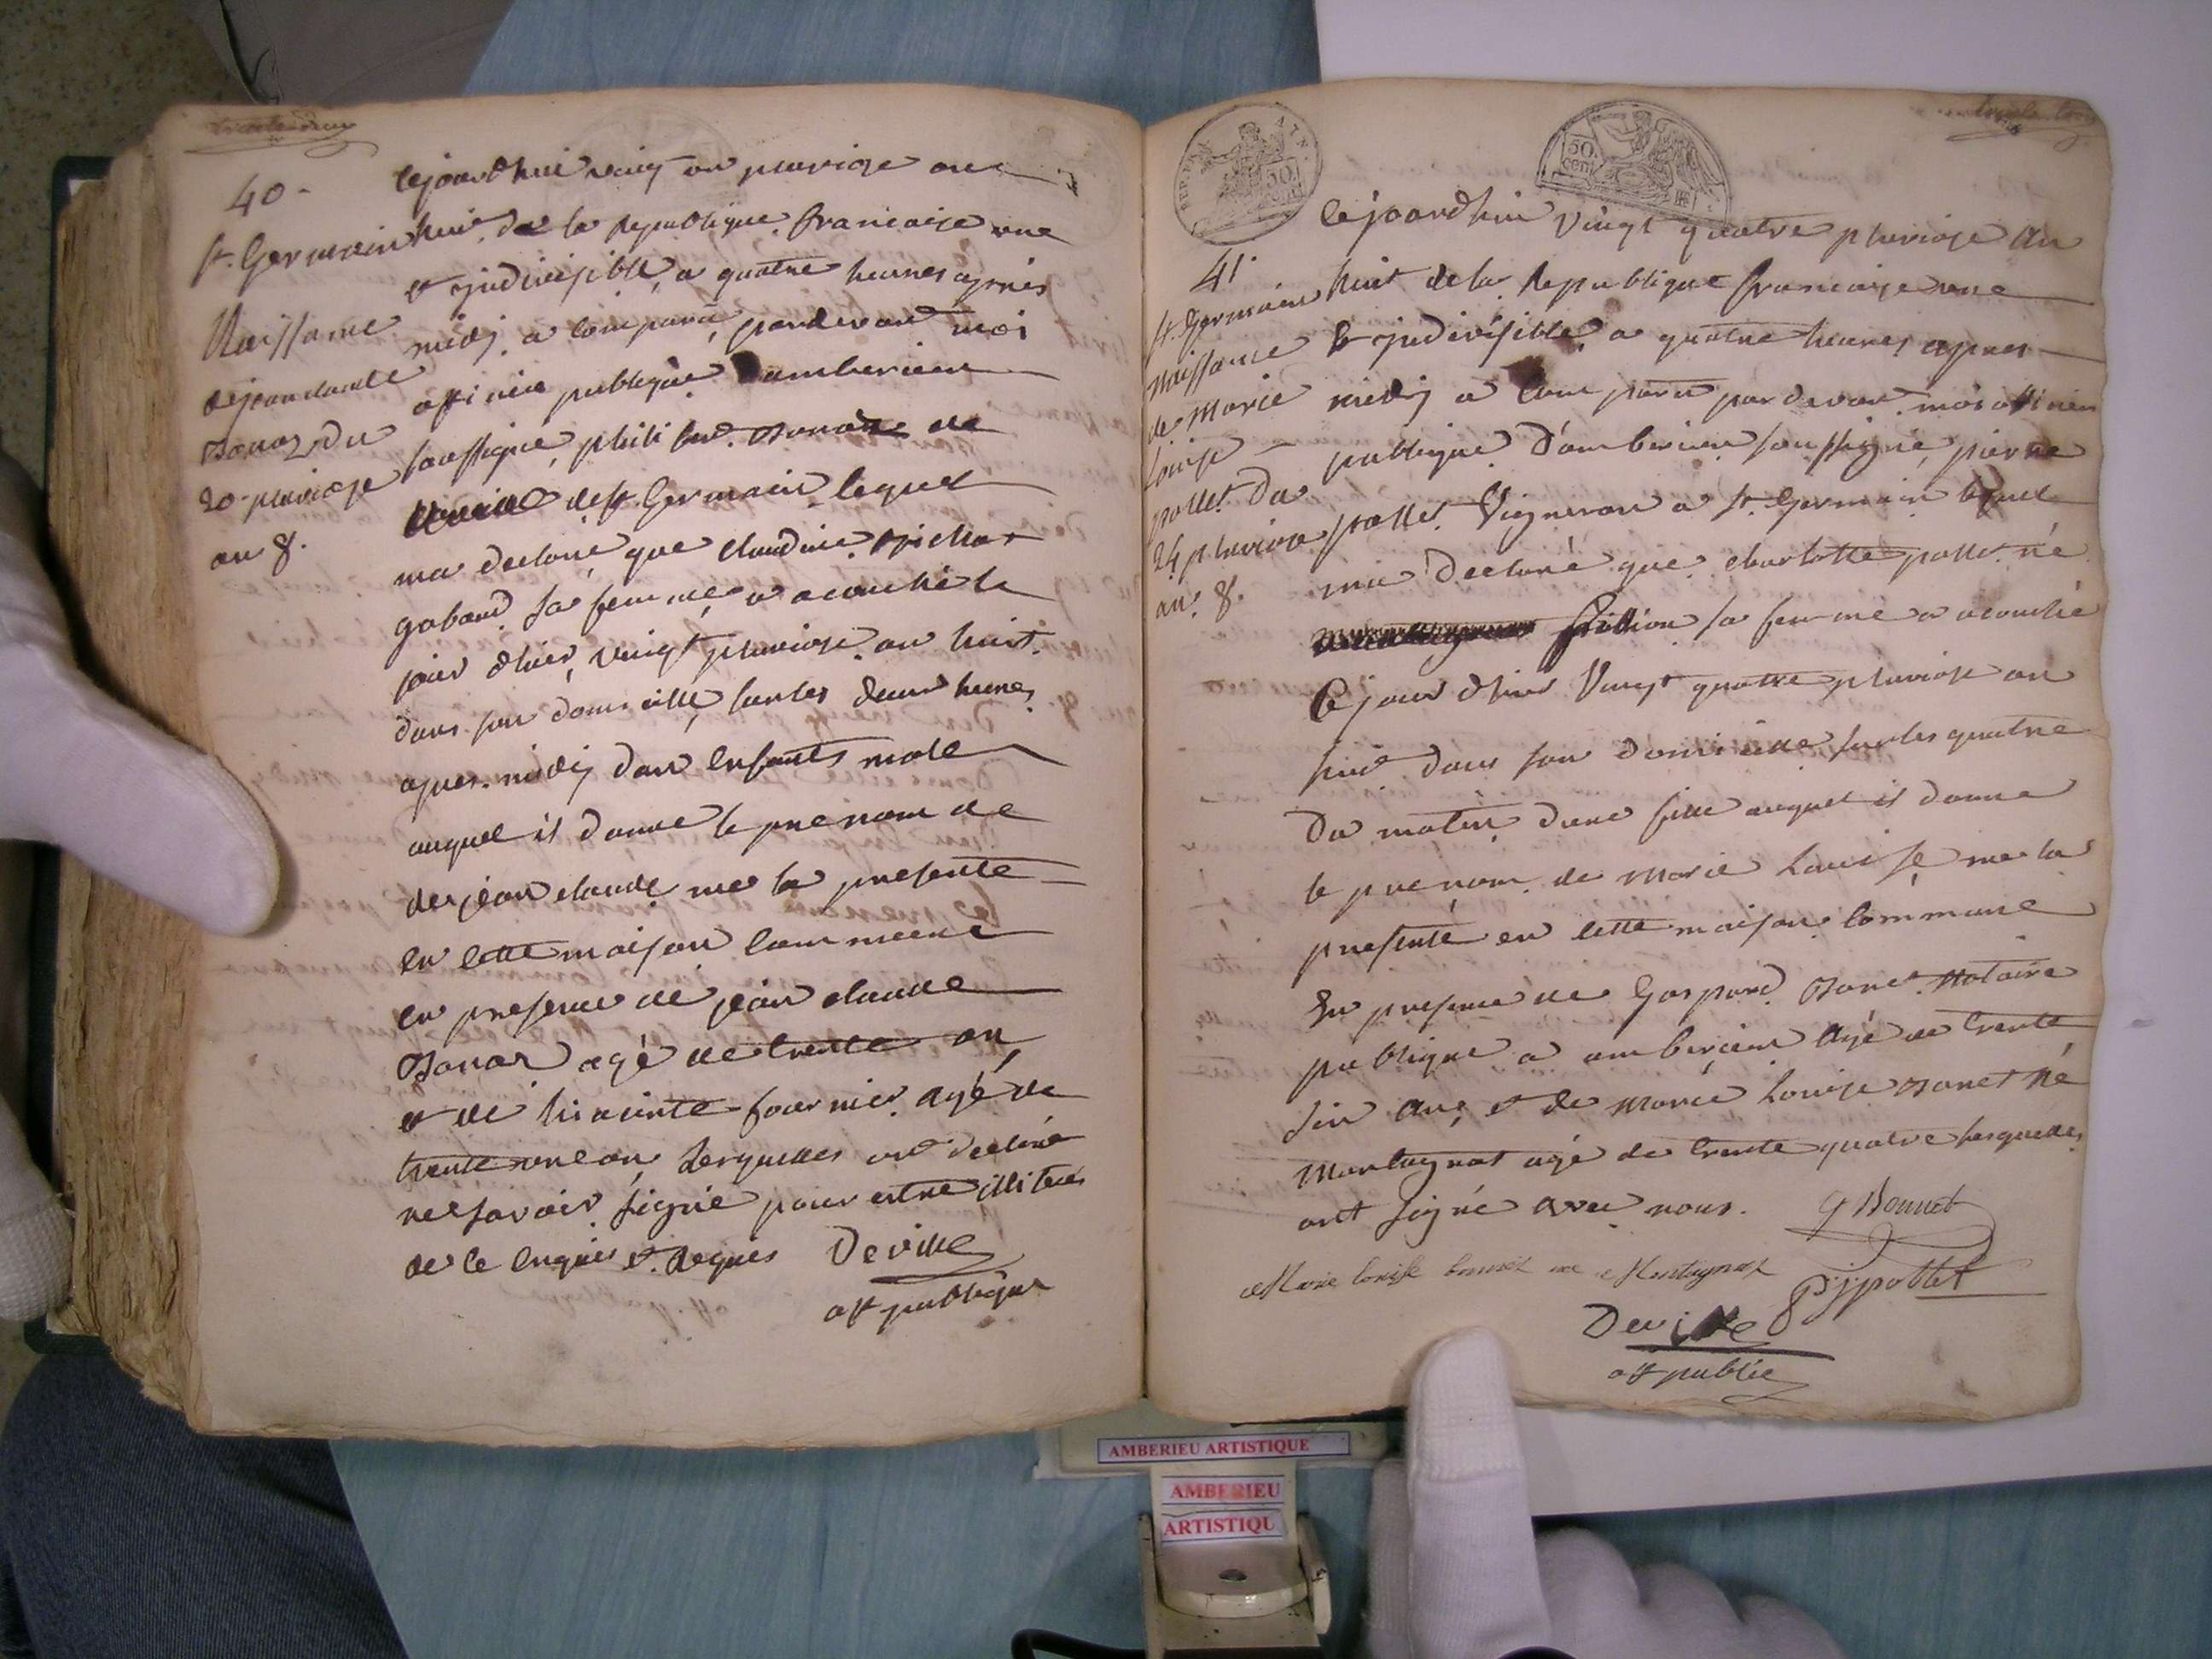 trente deux
40-
St. Germain
Naissance
de jean claude
Bonaz du
20 pluviose
an 8.
Cejourdhui vingt un pluviose an
huit de la Republique francaise une
et jndivisible, a quatre heures apres
midj a comparu pardevant moi
officier publique amberieu
soussigné, philibert Bonaz de
de St. Germain lequel
ma declaré que claudine
gabaud sa femme a acouché le
jour dhier, vingt pluviose an huit.
dans son domicille, sur les deux heures
apres midij dun enfants male
auquel il donne le prenom de
de jean claude me la presenté
en cette maison commune
en presence de jean claude
Bonaz agé de trente an
et de hiacinte fournier agé de
trente un an lesquelles on declaré
ne savoir signé pour estre illiterés
de ce enquis et Requis Deville
off publique
REP. FRA. 50
50 cent
trente trois
41.
St. Germain
Naissance
de Marie
Louise
pollet du
24 pluviose
an 8.
Cejourdhui vingt quatre pluviose an
huit de la Republique francaise une
Et jndivisible, a quatre heures apres
midj a comparu pardevant moi officier
publique d'amberieu soussigné, pierre
pollet Vigneron a St. Germain lequel
ma declaré que charlotte pollet né
sa femme a acouché
Ce jour dhui Vingt quatre pluviose an
huit dans son domicille sur les quatre
du matin dune fille auquel il donne
le prenom de Marie Louise me la
presenté en cette maison commune
En presence de Gaspard Bonet Notaire
publique a amberieu Agé de trente
six ans, et de Marie Louise Bonet né
Montagnat agé de trente quatre lesquelles
ont signé avec nous. G Bonnet
Marie louise bonnet né Montagnat
Pjpollet
Deville
off public
AMBERIEU ARTISTIQUE
AMBERIEU
ARTISTIQU